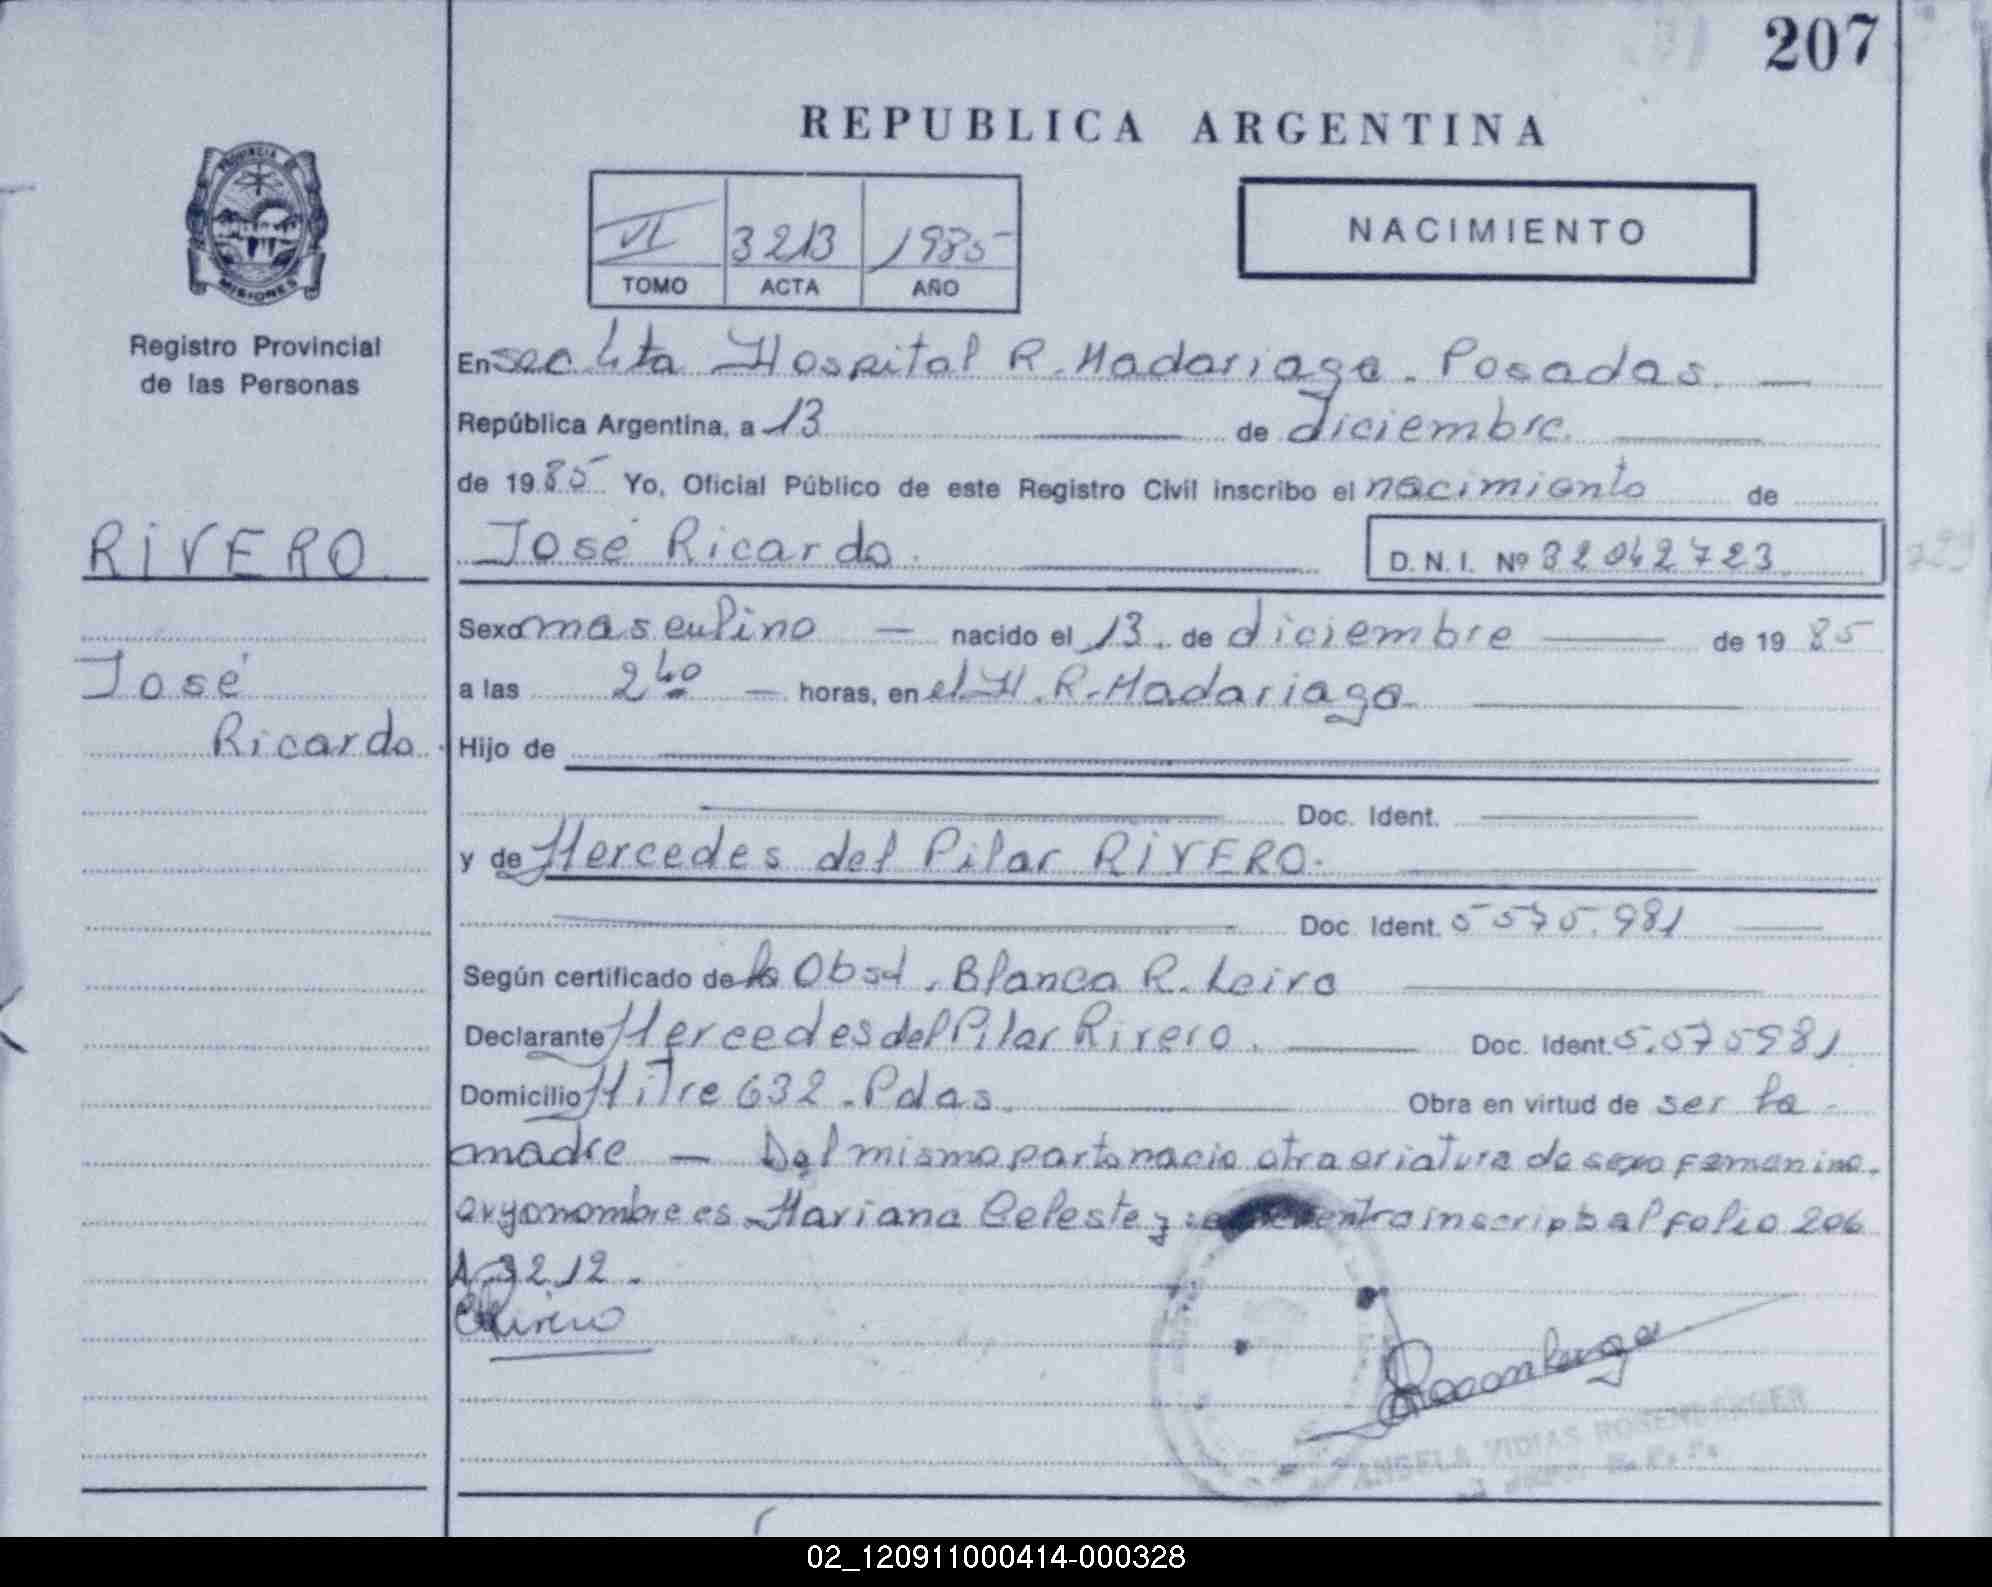 207
REPUBLICA ARGENTINA
PROVINCIA DE
MISIONES
VI 3213 1985
TOMO ACTA AÑO
NACIMIENTO
Registro Provincial
de las Personas
En Sec. 4ta Hospital R. Madariaga. Posadas.
República Argentina, a 13 de diciembre.
de 1985 Yo, Oficial Público de este Registro Civil inscribo el nacimiento de
RIVERO
José Ricardo.
D.N.I. Nº 32042723
Sexo masculino nacido el 13. de diciembre de 1985
José
a las 2 40 horas, en el H. R. Madariaga.
Ricardo.
Hijo de
Doc. Ident.
y de Mercedes del Pilar RIVERO.
Doc. Ident. 5575.981
Según certificado de la Obst. Blanca R. Leiva
Declarante Mercedes del Pilar Rivero. Doc. Ident. 5.575981
Domicilio Mitre 632. Pdas. Obra en virtud de ser la
madre — Del mismo parto nacio otra criatura de sexo femenino.
cuyo nombre es Mariana Celeste y se encuentra inscripta al folio 206
A. 3212.
Rivero
ANGELA VIDIAS ROSENBERGER
02_120911000414-000328